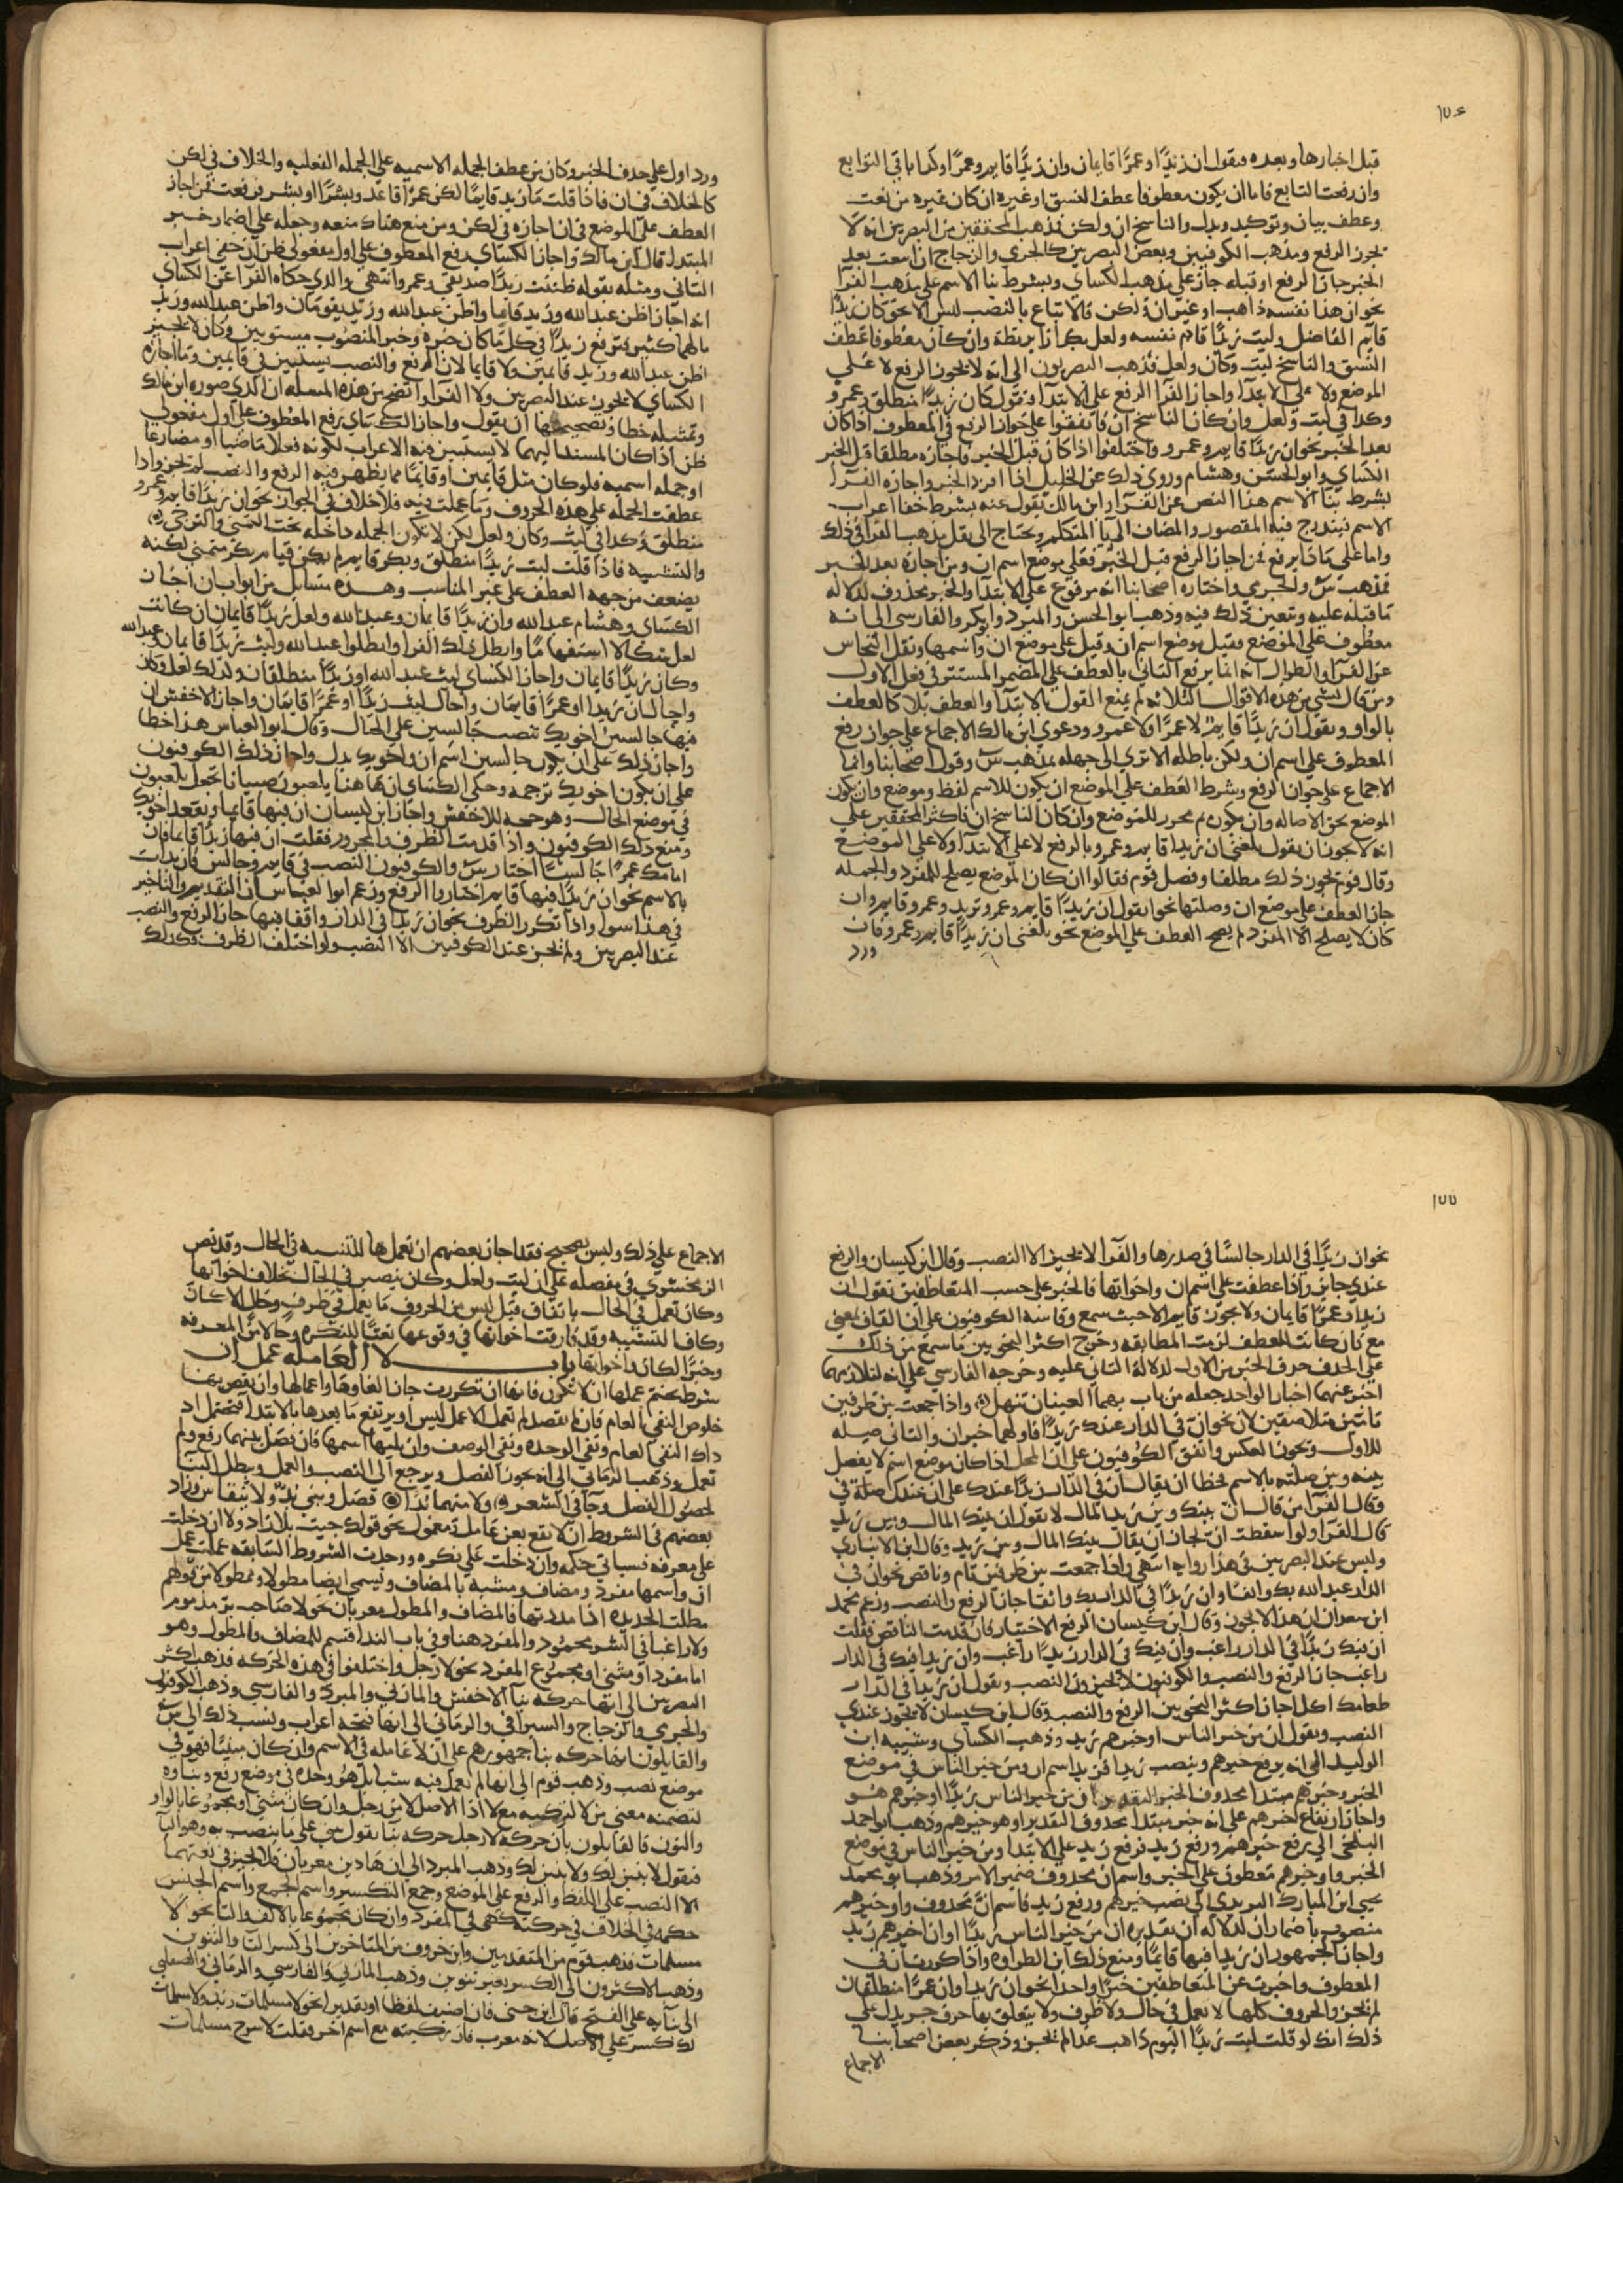 ١٧٤
قبل اخبارها وبعده فيقول ان زيدًا وعمرًا قايمان وان زيدًا قايم وعمرًا وكذا باقي التوابع
وان رفعت التابع فاما ان يكون معطوفا عطف النسق او غيره ان كان غيره من نعت
وعطف بيان وتوكيد وبدل والناسخ ان ولكن فذهب المحققين من البصريين انه لا
يجوز الرفع ومذهب الكوفيين وبعض البصريين كالجرمي والزجاج ان اسعت بعد
الخبر جاز الرفع او قبله جاز على مذهب الكساي وبشرط بنا الاسم على مذهب الفرا
نحو ان هذا نفسه ذاهب او غير ان ولكن فالاتباع بالنصب ليس الا نحو كان زيدًا
قايم الفاضل وليت زيدًا قادم نفسه ولعل بكرا نا بربطة وان كان معطوفا عطف
النسق والناسخ ليت وكان ولعل فذهب البصريون الى انه لا يجوز الرفع لا على
الموضع ولا على الابتدا واجاز الفرا الرفع على الابتدا فتقول كان زيدًا منطلق وعمرو
وكذا في ليت ولعل وان كان الناسخ ان فاتفقوا على جواز الرفع في المعطوف اذا كان
بعد الخبر نحو ان زيدًا قايم وعمرو واختلفوا اذا كان قبل الخبر فاجازه مطلقا قبل الخبر
الكساي وابو الحسن وهشام وروي ذلك عن الخليل اذا افرد الخبر واجازه الفرا
بشرط بنا الاسم هذا النص عن الفرا وابن مالك يقول عنه بشرط خفا اعراب
الاسم فيندرج فيه المقصور والمضاف الى يا المتكلم ويحتاج الى نقل مذهب الفرا في ذلك
واما على ماذا يرفع فمن اجاز الرفع قبل الخبر فعلى موضع اسم ان ومن اجازه بعد الخبر
فمذهب س والجرمي واختاره اصحابنا انه مرفوع على الابتدا والخبر محذوف لدلالة
ما قبله عليه ويتعين ذلك فيه وذهب ابو الحسن والمبرد وابو بكر والفارسي الى انه
معطوف على الموضع فقيل موضع اسم ان وقيل على موضع ان واسمها ونقل النحاس
عن الفرا والطوال انه انما يرفع الثاني بالعطف على المضمر المستتر في فعل الاول
ومن قال بشي من هذه الاقوال الثلاثه لم يمنع القول بالابتدا والعطف بلا كالعطف
بالواو ويقول ان زيدًا قايم لا عمرًا ولا عمرو ودعوى ابن مالك الاجماع على جواز رفع
المعطوف على اسم ان ولكن باطله الا ترى الى جهله بمذهب س وقول اصحابنا وانما
الاجماع على جواز الرفع وشرط العطف على الموضع ان يكون للاسم لفظ وموضع وان يكون
الموضع بحق الاصاله وان يكون ثم محرز للموضع وان كان الناسخ ان فاكثر المحققين على
انه لا يجوز ان يقول بلغني ان زيدا قايم وعمرو بالرفع لا على الابتدا ولا على الموضع
وقال قوم يجوز ذلك مطلقا وفصل قوم فقالوا ان كان الموضع يصلح للمفرد والجمله
جاز العطف على موضع ان وصلتها نحو ايقول ان زيدًا قايم وعمرو تريد وعمرو قايم وان
كان لا يصلح الا المفرد لم يصح العطف على الموضع نحو بلغني ان زيدًا قايم وعمرو فان
ورد
ورد اول على حذف الخبر وكان من عطف الجمله الاسميه على الجمله الفعليه والخلاف في لكن
كالخلاف في ان فاذا قلت ما زيد قايمًا لكن عمرًا قاعد وبشرًا او بشر فمن نعت فمن اجاز
العطف على الموضع في ان اجازه في لكن ومن منع هناك منعه وجعله على اضمار خبر
المبتدا قال ابن مالك واجاز الكساي رفع المعطوف على اول مفعولي ظن ان خفي اعراب
الثاني ومثله بقوله ظننت زيدًا صديقي وعمرو انتهى والذي حكاه الفرا عن الكساي
انه اجاز اظن عبد الله وزيد قاما واظن عبد الله وزيد يقومان واظن عبد الله وزيد
مالهما كثير فترفع زيدًا في كل ما كان خبره وخبر المنصوب مستويين وكان لا يجيز
اظن عبد الله وزيد قايمين ولا قايما لان الرفع والنصب يستبين في قايمين وما اجازه
الكساي لا يجوز عند البصريين ولا الفرا واتضح من هذه المساله ان الذي صوره ابن مالك
وتمثيله خطا وتصحيحها ان يقول واجاز الكساي رفع المعطوف على اول مفعولي
ظن اذا كان المسند اليهما لا يستبين فيه الاعراب لكونه فعلا ماضيا او مضارعا
او جمله اسميه فلو كان مثل قايمين او قايما مما يظهر فيه الرفع والنصب لم يجز واذا
عطفت الجمله على هذه الحروف وما عملت فيه فلا خلاف في الجواز نحو ان زيدًا قايم وعمرو
منطلق وكذا في ليت وكان ولعل لكن لا تكون الجمله داخله تحت التمني والترجي
والتشبيه فاذا قلت ليت زيدًا منطلق وبكر قايم لم يكن قيام بكر متمنى لكنه
يضعف من جهة العطف على غير المناسب وهذه مسايل من ابواب ان اجاز
الكساي وهشام عبد الله وان زيدًا قايمان وعبد الله ولعل زيدًا قايمان ان كانت
لعل شكا لا استفهاما وابطل ذلك الفرا وابطلوا عبد الله وليت زيدًا قايمان وعبد الله
وكان زيدًا قايمان واجاز الكساي ليت عبد الله او زيدًا منطلقان وكذلك لعل وكان
واحال ان زيدا او عمرًا قايمان واحال ليت زيدًا او عمرًا قايمان واجاز الاخفش ان
فيها جالسين اخويك تنصب جالسين على الحال وقال ابو العباس هذا خطا
واجاز ذلك على ان يكون جالسين اسم ان واخويك بدل واجاز ذلك الكوفيون
على ان يكون اخويك ترجمه وحكى الكساي ان هاهنا يلعبون صبيانا تجعل يلعبون
في موضع الحال وهو حجه للاخفش واجاز ابن كيسان ان فيها قايما ويقعد اخويك
ومنع ذلك الكوفيون واذا قدمت الظرف والمجرور فقلت ان فيها زيدًا قايما فان
امامك عمرًا جالسًا اختار س والكوفيون النصب في قايم وجالس فان بدات
بالاسم نحو ان زيدًا فيها قايم اختاروا الرفع وزعم ابو العباس ان التقديم والتاخير
في هذا سوا واذا تكرر الظرف نحو ان زيدا في الدار واقفا فيها جاز الرفع والنصب
عند البصريين ولم يجز عند الكوفيين الا النصب ولو اختلف الظرف فكذلك
١٧٧
نحو ان زيدًا في الدار جالسًا في صدرها والفرا لا يجيز الا النصب وقال ابن كيسان والرفع
عندي جايز واذا عطفت على اسم ان واخواتها فالخبر على حسب المتعاطفين تقول ان
زيدا وعمرًا قايمان ولا يجوز قايم الا حيث سمع وقاسه الكوفيون على ان القاف لمعنى
مع فان كانت للعطف لزمت المطابقه وخرج اكثر النحويين ما سمع من ذلك
على الحذف حذف الخبر من الاول لدلالة الثاني عليه وخرجه الفارسي على انه لتلازمهما
اخبر عنهما اخبار الواحد جعله من باب بهما العينان تنهل واذا جمعت بين ظرفين
تامين متلاصقين لان نحو ان في الدار عندك زيدًا فاولهما خبر ان والثاني صله
للاول ويجوز العكس واتفق الكوفيون على ان المحل اذا كان موضع اسم لا يفصل
بينه وبين صلته بالاسم فخطا ان يقال ان في الدار زيدًا عندك على ان عندك صلة في
وقال الفرا من قال ان بينك وبين زيد لمال لا يقول ان بينك المال وبين زيد
قال الفرا ولو اسقطت ان لجاز ان يقال بينك المال وبين زيد وقال ابن الانباري
وليس عند البصريين في هذا روايه انتهى واذا جمعت بين ظرفين تام وناقص نحو ان في
الدار عبد الله بك واثقا وان زيدًا في الدار بك واثقا جاز الرفع والنصب وزعم محمد
ابن سعدان ان هذا لا يجوز وقال ابن كيسان الرفع الاختيار فان قدمت الناقص فقلت
ان فيك زيدًا في الدار راغب وان فيك في الدار زيدًا راغب وان زيدا فيك في الدار
راغب جاز الرفع والنصب والكوفيون لا يجيزون النصب وتقول ان زيدًا في الدار
طعامك اكل اجاز اكثر النحويين الرفع والنصب وقال ابن كيسان لا يجوز عندي
النصب وتقول ان من خير الناس او خيرهم زيد وذهب الكساي وشبيبه ابن
الوليد الى انه يرفع خيرهم وينصب زيدا فزيد اسم ان ومن خير الناس في موضع
الخبر وخيرهم مبتدا محذوف الخبر التقدير ان من خير الناس زيدًا او خيرهم هو
واجاز ارتفاع خيرهم على انه خبر مبتدا محذوف التقدير او هو خيرهم وذهب ابو احمد
البلخي الى رفع خيرهم ورفع زيد فرفع زيد على الابتدا ومن خير الناس في موضع
الخبر واو خيرهم معطوف على الخبر واسم ان محذوف ضمير الامر وذهب ابو محمد
يحيى ابن المبارك اليزيدي الى نصب خيرهم ورفع زيد فاسم ان محذوف واو خيرهم
منصوب باضمار ان لدلالة ان تقديره ان من خير الناس زيدًا او ان خيرهم زيد
واجاز الجمهور ان زيدا فيها قايمًا ومنع ذلك ابن الطراوه واذا كررت ان في
المعطوف واخبرت عن المتعاطفين خبرًا واحدا نحو ان زيدا وان عمرًا منطلقان
لم يجز والحروف كلها لا تعمل في حال ولا ظرف ولا يتعلق بها حرف جر يدل على
ذلك انك لو قلت ليت زيدًا اليوم ذاهب غدا لم يجز وذكر بعض اصحابنا
الاجماع
الاجماع على ذلك وليس بصحيح فقد اجاز بعضهم ان تعمل ها للتنبيه في الحال وقد نص
الزمخشري في مفصله على ان ليت ولعل وكان ينصبن في الحال بخلاف اخواتها
وكان تعمل في الحال باتفاق قيل ليس من الحروف ما يعمل في ظرف وحال الا كان
وكاف التشبيه وقد فارقت اخواتها في وقوعها نعتًا للنكره وحالا من المعرفه
وخبرًا لكان واخواتها باب لا العامله عمل ان
شرط تحتم عملها ان لا تتكرر فانها ان تكررت جاز الغاوها واعمالها وان يقصد بها
خلوص النفي العام فان لم يقصد لم تعمل الا عمل ليس او يرتفع ما بعدها بالابتدا فتحتمل اذ
ذاك النفي العام ونفي الوحده ونفي الوصف وان يليها اسمها فان فصل بينهما رفع ولم
تعمل وذهب الرماني الى انه يجوز الفصل ويرجع الى النصب والعمل ويبطل البنا
لحصول الفصل وجا في الشعر ولا منهما بدا فصل وبني بدّ ولا يقاس وزاد
بعضهم في الشروط ان لا تقع بعد عامل لمعمول نحو قولك جيت بلا زاد ولا ان دخلت
على معرفه فسياتي حكمه وان دخلت على نكره ووجدت الشروط السابقه عملت عمل
ان واسمها مفرد ومضاف ومشبه بالمضاف ويسمى ايضا مطولا وممطولا من قولهم
مطلت الحديده اذا مددتها فالمضاف والمطول معربان نحو لا صاحب بر مذموم
ولا راغبا في الشر محمود والمفرد هنا وفي باب الندا قسم للمضاف والمطول وهو
اما مفرد او مثنى او مجموع المفرد نحو لا رجل واختلفوا في هذه الحركه فذهب اكثر
البصريين الى انها حركه بنا الاخفش والمازني والمبرد والفارسي وذهب الكوفيون
والجرمي والزجاج والسيرافي والرماني الى انها فتحة اعراب ونسب ذلك الى س
والقايلون بانها حركه بنا جمهورهم على ان لا عامله في الاسم وان كان مبنيًا فهو في
موضع نصب وذهب قوم الى انها لم تعمل فيه شيا بل هو وحده في موضع رفع وبناوه
لتضمنه معنى من لا لتركيبه مع لا اذا الاصل لا من رجل وان كان مثنى او مجموعا بالواو
والنون فالقايلون بان حركة لا رجل حركه بنا يقول بني على ما ينصب به وهو اليا
فتقول لا بنين لك ولا بنين لك وذهب المبرد الى ان هاذين معربان فلا يجيز في نعتهما
الا النصب على اللفظ والرفع على الموضع وجمع التكسير واسم الجمع واسم الجنس
حكمه في الخلاف في حركته كهي في المفرد وان كان مجموعا بالالف والتا نحو لا
مسلمات فذهب قوم من المتقدمين وابن خروف من المتاخرين الى كسر التا والتنوين
وذهب الاكثرون الى الكسر بغير تنوين وذهب المازني والفارسي والرماني والصقلي
الى بنايه على الفتح قال ابن جني فان اضيف لفظا او تقديرا نحو لا مسلمات زيد ولا مسلمات
لك كسر على الاصل لانه معرب فان ركبته مع اسم اخر فقلت لا سرج مسلمات